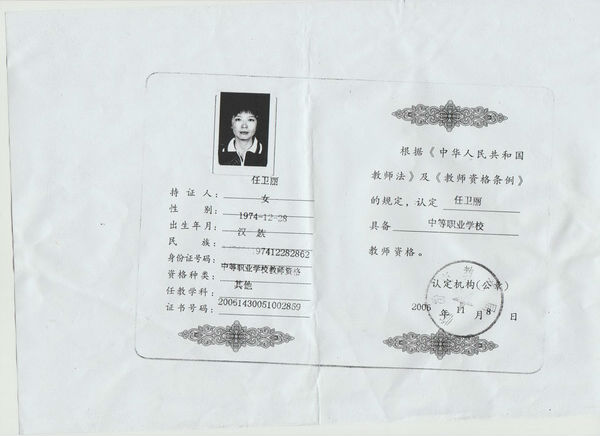 持证人：任卫丽
性别：女
出生年月：1974-12-28
民族：汉族
身份证号码：97412282862
资格种类：中等职业学校教师资格
任教学科：其他
证书号码：20061430051002859
根据《中华人民共和国
教师法》及《教师资格条例》
的规定，认定 任卫丽
具备 中等职业学校
教师资格。
认定机构(公章)
2006 年 11 月 8 日